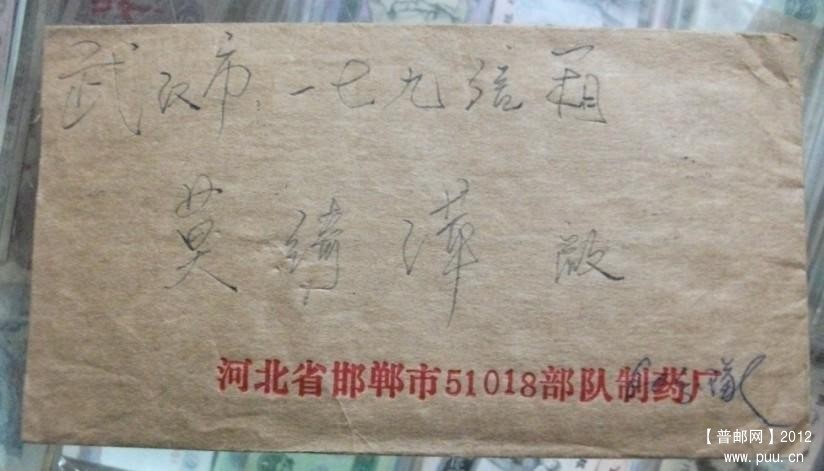 武汉市 一七九信箱
莫绮萍 啟
河北省邯郸市51018部队制药厂
【普邮网】2012
www.puu.cn